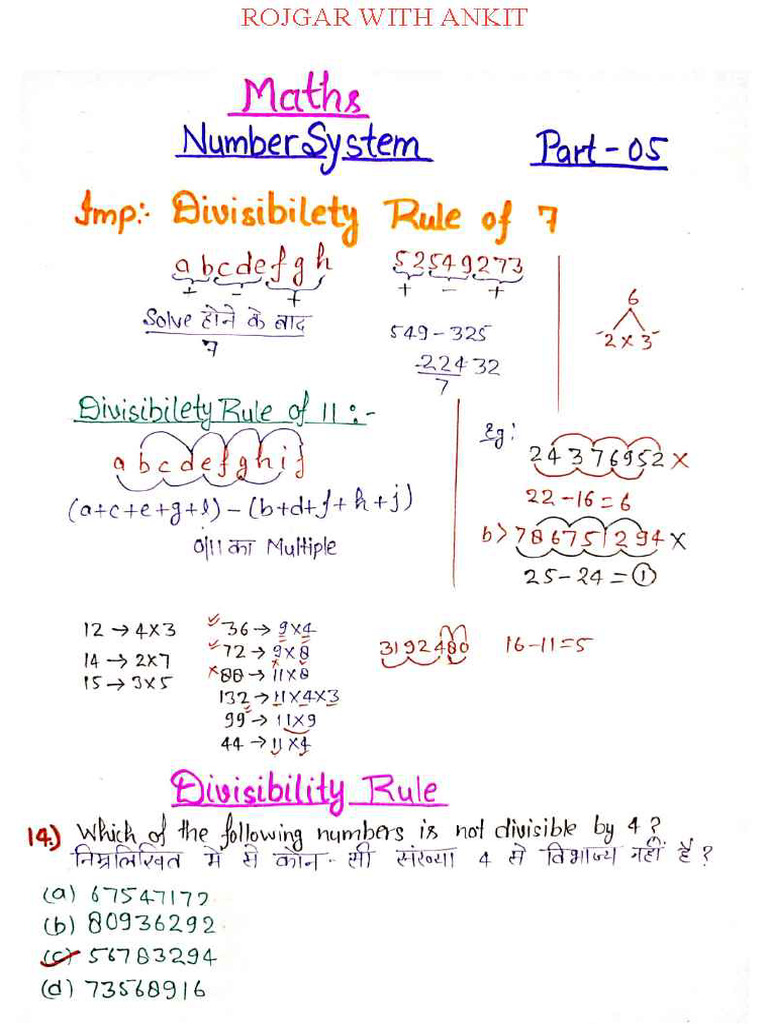 ROJGAR WITH ANKIT
Maths
Number System Part-05
Imp:- Divisibilety Rule of 7
abcdefgh
± - +
Solve होने के बाद
7
52549273
+ - +
549-325
224.32
7
6
2x3
Divisibilety Rule of 11:-
abcdefghij
(a+c+e+g+i)-(b+d+f+h+j)
0/11 का Multiple
Eg:
24376952 x
22-16=6
b> 786751294 x
25-24=1
12→4x3
14→2x7
15→3x5
36→9x4
72→9x8
88→11x8
132→11x4x3
99→11x9
44→11x4
3192480 16-11=5
Divisibility Rule
14.) Which of the following numbers is not divisible by 4?
निम्नलिखित मे से कौन-सी संख्या 4 से विभाज्य नहीं है?
(a) 67547172
(b) 80936292
(c) 56783294
(d) 73568916